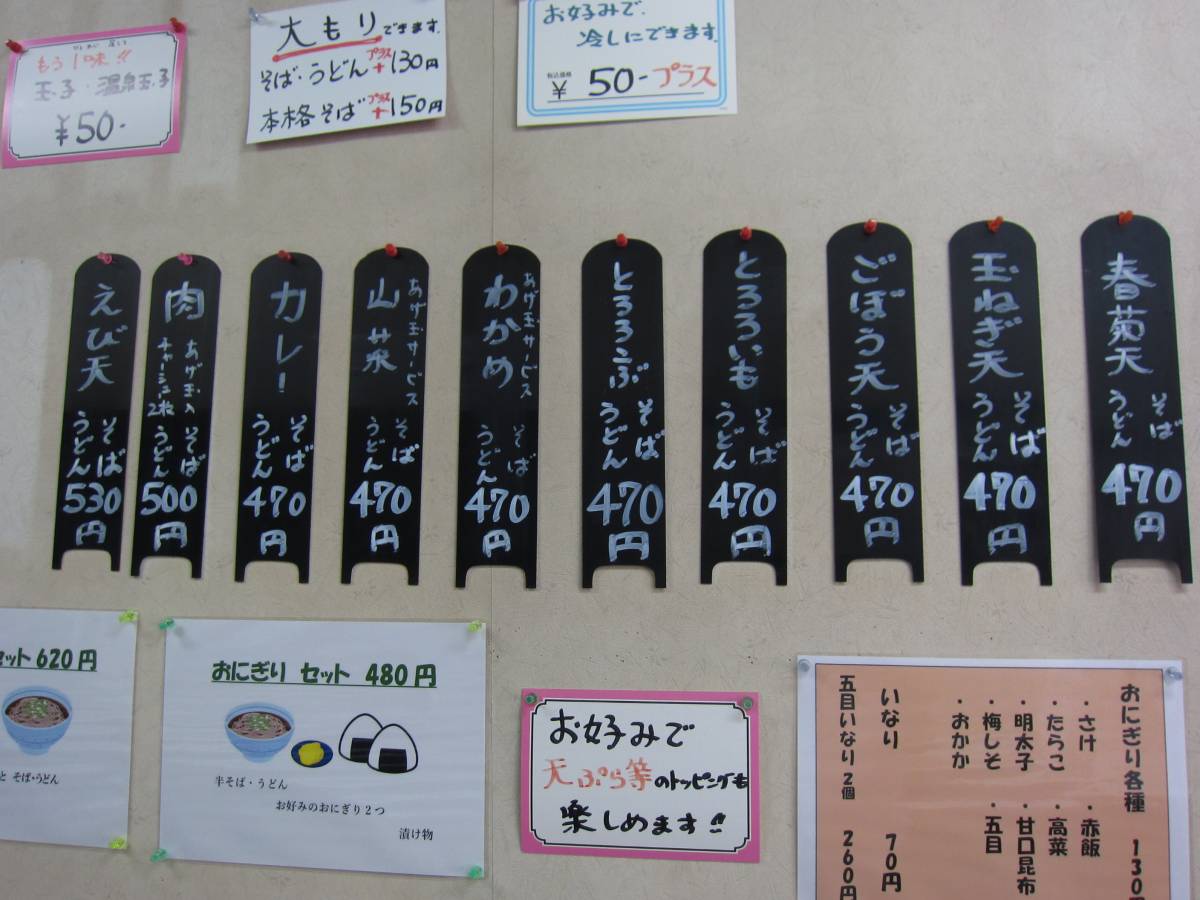 もう1味!!
玉子・温泉玉子
¥50-
大もりできます。
そば・うどん プラス+130円
本格そば プラス+150円
お好みで、
冷しにできます。
税込価格
¥ 50-プラス
春菊天 そば うどん 470円
玉ねぎ天 そば うどん 470円
ごぼう天 そば うどん 470円
とろろいも そば うどん 470円
とろろこぶ そば うどん 470円
わかめ あげ玉サービス そば うどん 470円
山菜 あげ玉サービス そば うどん 470円
カレー そば うどん 470円
肉 あげ玉入 チャーシュー2枚 そば うどん 500円
えび天 そば うどん 530円
セット620円
と そば・うどん
おにぎり セット 480円
半そば・うどん
お好みのおにぎり2つ
漬け物
お好みで
天ぷら等のトッピングも
楽しめます!!
おにぎり各種 130円
・さけ ・赤飯
・たらこ ・高菜
・明太子 ・甘口昆布
・梅しそ ・五目
・おかか
いなり 70円
五目いなり2個 260円